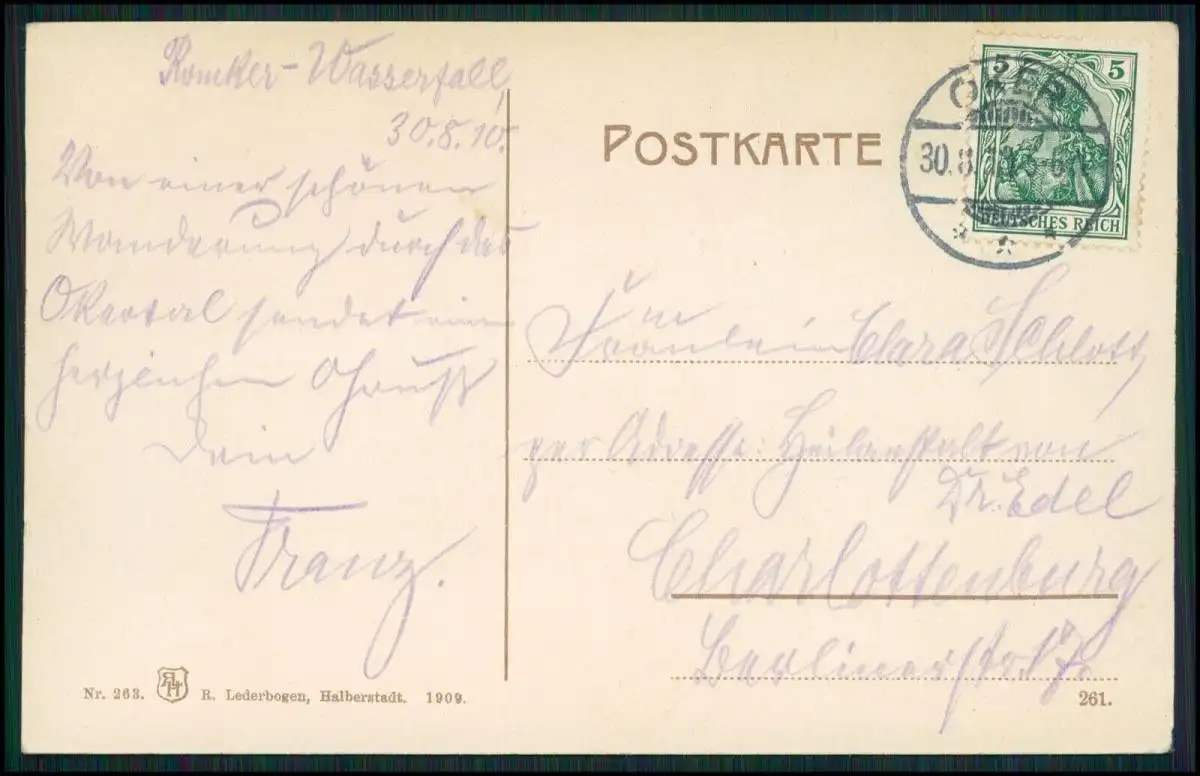 Romker-Wasserfall,
30.8.10.
Von einer schönen
Wanderung durch das
Okertal sendet einen
herzlichen Gruß
Dein
Franz.
Nr. 263.
R. Lederbogen, Halberstadt. 1909.
POSTKARTE
5 5
DEUTSCHES REICH
OKER
30.8.10
Fräulein Clara Schlott
per Adresse: Heilanstalt von
Dr. Edel
Charlottenburg
Berlinerstr. 17.
261.